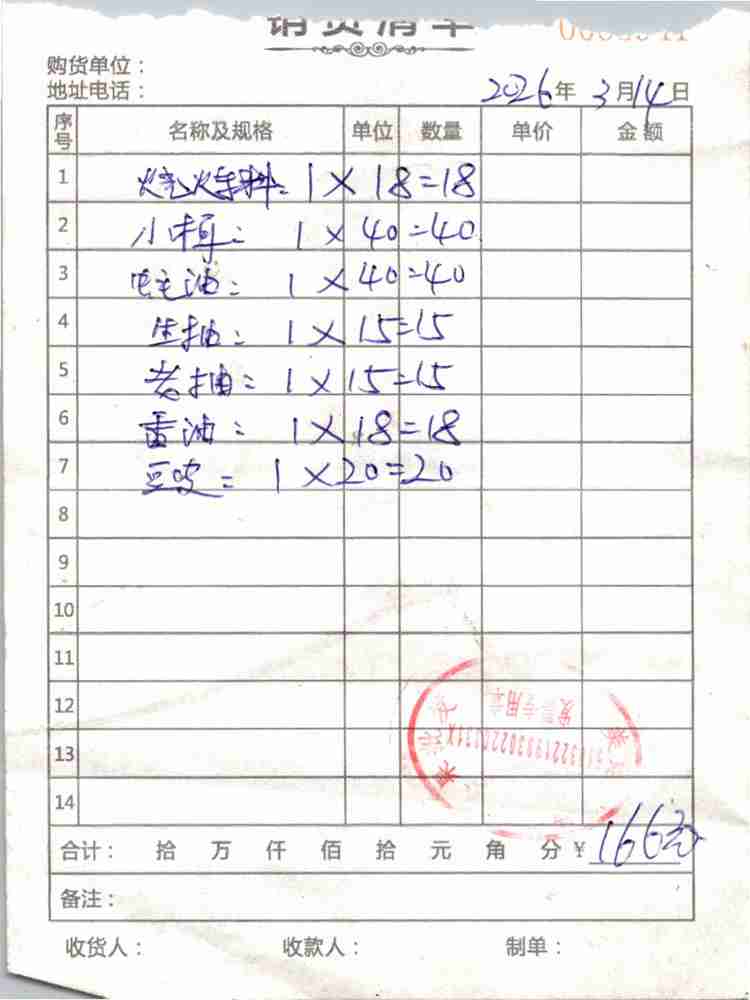 销货清单
购货单位：
地址电话：
2026年 3月14日
序号 名称及规格 单位 数量 单价 金额
1 烧烤料: 1×18=18
2 小椒: 1×40=40
3 蚝油: 1×40=40
4 生抽: 1×15=15
5 老抽: 1×15=15
6 酱油: 1×18=18
7 豆皮: 1×20=20
8
9
10
11
12
13
14
发票专用章
合计： 拾 万 仟 佰 拾 元 角 分 ¥ 166元
备注：
收货人： 收款人： 制单：